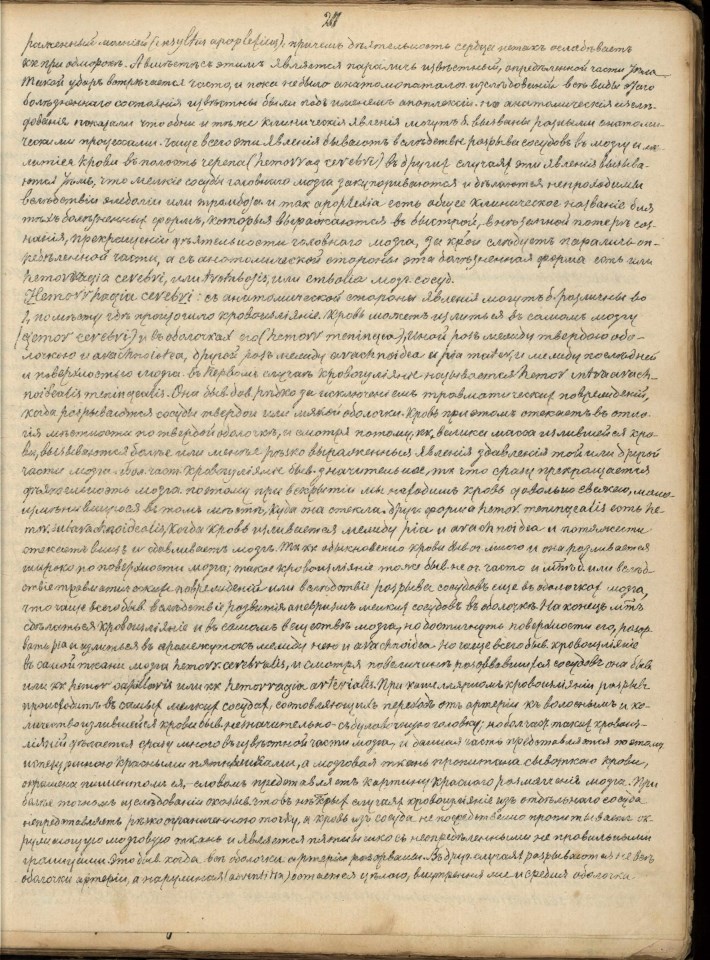 27
раженный молніей (insultus apoplecticus), причемъ дѣятельность сердца не такъ ослабѣваетъ
кк при обморокѣ. А вмѣстѣ съ этимъ является параличъ извѣстной, опредѣленной части тѣла
Такой ударъ встрѣчается часто, и пока не было анатомопатолог. изслѣдованій всѣ виды этого
болѣзненнаго состоянія извѣстны были подъ именемъ апоплексіи. Но анатомическія изслѣ-
дованія показали что одни и тѣже клиническія явленія могутъ б. вызваны разными анатоми-
ческими процессами. Чаще всего эти явленія бываютъ вслѣдствіе разрыва сосудовъ въ мозгу и из-
литія крови въ полость черепа (hemorrag cerebri) въ другихъ случаяхъ эти явленія вызыва-
ются тѣмъ, что мелкіе сосуды головнаго мозга закупориваются и дѣлаются непроходимы
вслѣдствіи эмболіи или тромбоза и такъ apoplexia есть общее клиническое названіе для
тѣхъ болѣзненныхъ формъ, которыя выражаются въ быстрой, внезапной потерѣ соз-
нанія, прекращеніи дѣятельности головнаго мозга, за кдой слѣдуетъ параличъ оп-
редѣленной части, а съ анатомической стороны эта болѣзненная форма есть или
hemorrhagia cerebri, или trombosis, или embolia мозг. сосуд.
Hemorrhagia cerebri: съ анатомической стороны явленія могутъ б. различны во
1, по мѣсту гдѣ произошло кровоизліяніе. Кровь можетъ излиться въ самомъ мозгу
(hemor cerebri) и въ оболочкахъ его (hemorr meningea), иной разъ между твердою обо-
лочкою и arachnoidea, другой разъ между arachnoidea и pia mater, и между послѣдней
и поверхностью мозга. Въ первомъ случаѣ кровоизліяніе называется hemor intraarach-
noidealis meningealis. Она быв. доволь. рѣдко за исключеніемъ травматическихъ поврежденій,
когда разрываются сосуды твердой или мягкой оболочки. Кровь при этомъ стекаетъ въ отло-
гія мѣстности по твердой оболочкѣ, и смотря потому, кк велика масса излившейся кро-
ви, вызываются болѣе или менѣе рѣзко выраженныя явленія сдавленія той или другой
части мозга. кровоизліяніе быв. значительное, тк что сразу прекращается
дѣятельность мозга поэтому при вскрытіи мы находимъ кровь довольно свѣжею, мало
измѣнившуюся въ томъ мѣстѣ, куда она стекла. Друг. форма hemor. meningealis есть he
mor. subarachnoidealis, когда кровь изливается между pia и arachnoidea и по тяжести
стекаетъ внизъ и сдавливаетъ мозгъ. Тк кк обыкновенно крови быв. много и она разливается
широко по поверхности мозга; такое кровоизліяніе тоже быв. не ос. часто и или вслѣд-
ствіе травматическихъ поврежденій или вслѣдствіе разрыва сосудовъ еще въ оболочкахъ мозга,
что чаще всего быв. вслѣдствіе развитія аневризмъ мелкихъ сосудовъ въ оболочкѣ. На конецъ м. б.
сдѣлаться кровоизліяніе и въ самомъ веществѣ мозга, но достигнуть поверхности его, разор-
вать pia и излиться въ промежутокъ между нею и arachnoidea. Но чаще всего быв. кровоизліяніе
въ самой ткани мозга hemorr. cerebralis, и смотря по величинѣ разорвавшихся сосудовъ она быв.
или кк hemor capillaris или кк hemorragia arterialis. При капиллярномъ кровоизліяніи разрывъ
происходитъ въ самыхъ мелкихъ сосудахъ, составляющихъ переходъ отъ артеріи къ волоснымъ и ко-
личество излившейся крови быв. незначительно съ булавочную головку; но больше такихъ кровоиз-
ліяній дѣлается сразу много въ извѣстной части мозга, и данная часть представляется поэтому
испещренною красными пятнышками, а мозговая ткань пропитана сывороткою крови,
окрашена пигментомъ ея, словомъ представляетъ картину краснаго размягченія мозга. При
болѣе точномъ изслѣдованіи оказыв. что въ нѣкрыхъ случаяхъ кровоизліяніе изъ отдѣльнаго сосуда
непредставляетъ рѣзко ограниченнаго точку, а кровь изъ сосуда непосредственно пропитываетъ ок-
ружающую мозговую ткань и является пятнышко съ неопредѣленными неправильными
границами. Это быв. когда всѣ оболочки артеріи разорваны. Въ друг. случаяхъ разрываются не всѣ
оболочки артеріи, а наружная (adventitia) остается цѣлою, внутренняя же и средняя оболочка